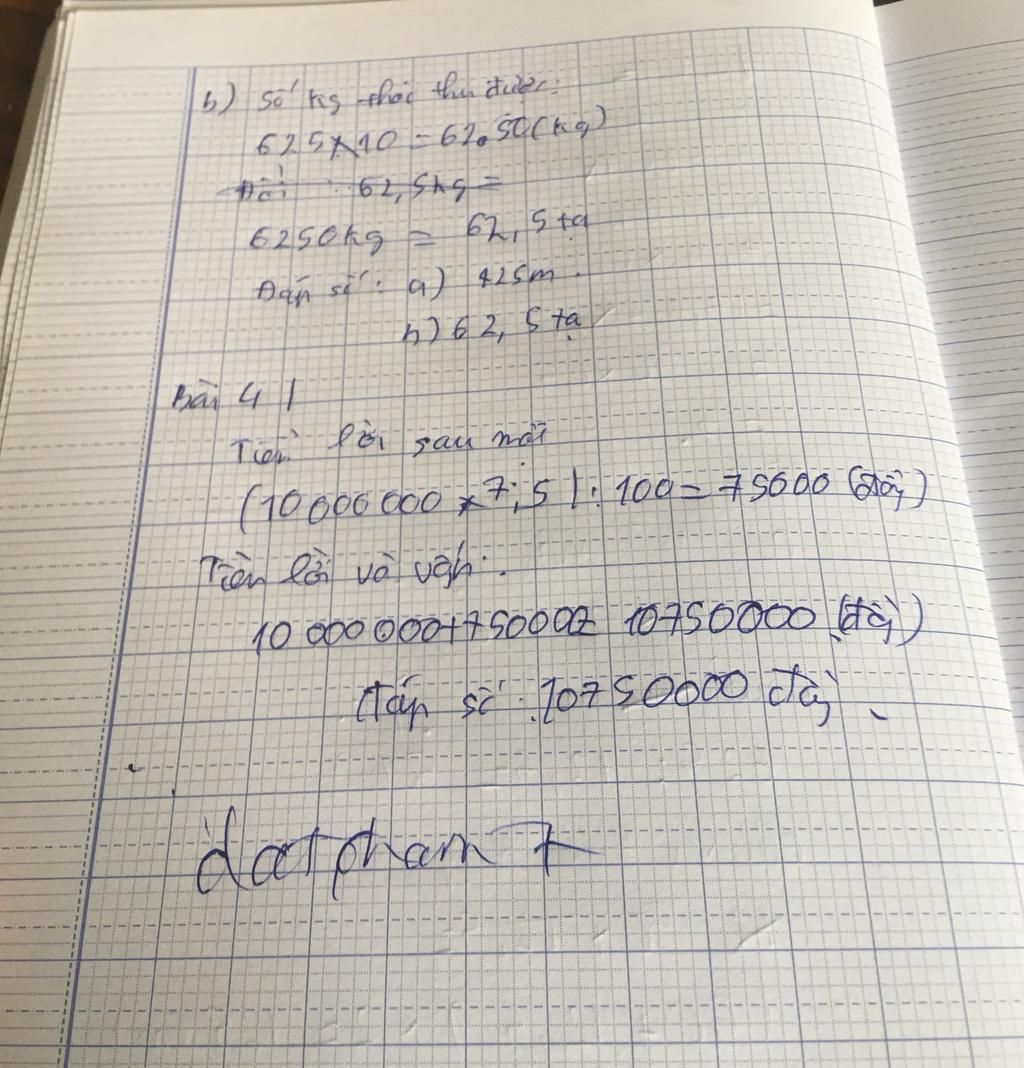 b) Số kg thóc thu được:
625 x 10 = 62.50 (kg)
Đổi : 62,5kg =
6250kg = 62,5 tạ
Đáp số: a) 425m.
b) 62,5 tạ
Bài 4/
Tiền lời sau một
(10 000 000 x 7,5) : 100 = 75000 (đồng)
Tiền lời và vốn:
10 000 000 + 750000 = 10750000 (đồng)
Đáp số: 10750000 đồng.
datpham